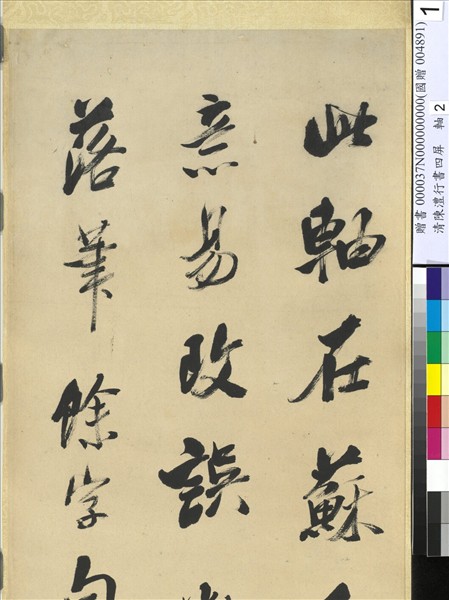 此軸在蘇
意易改誤
落筆餘字
贈書 000037N000000000(國贈 004891)
清陳澧行書四屏 軸 2
1